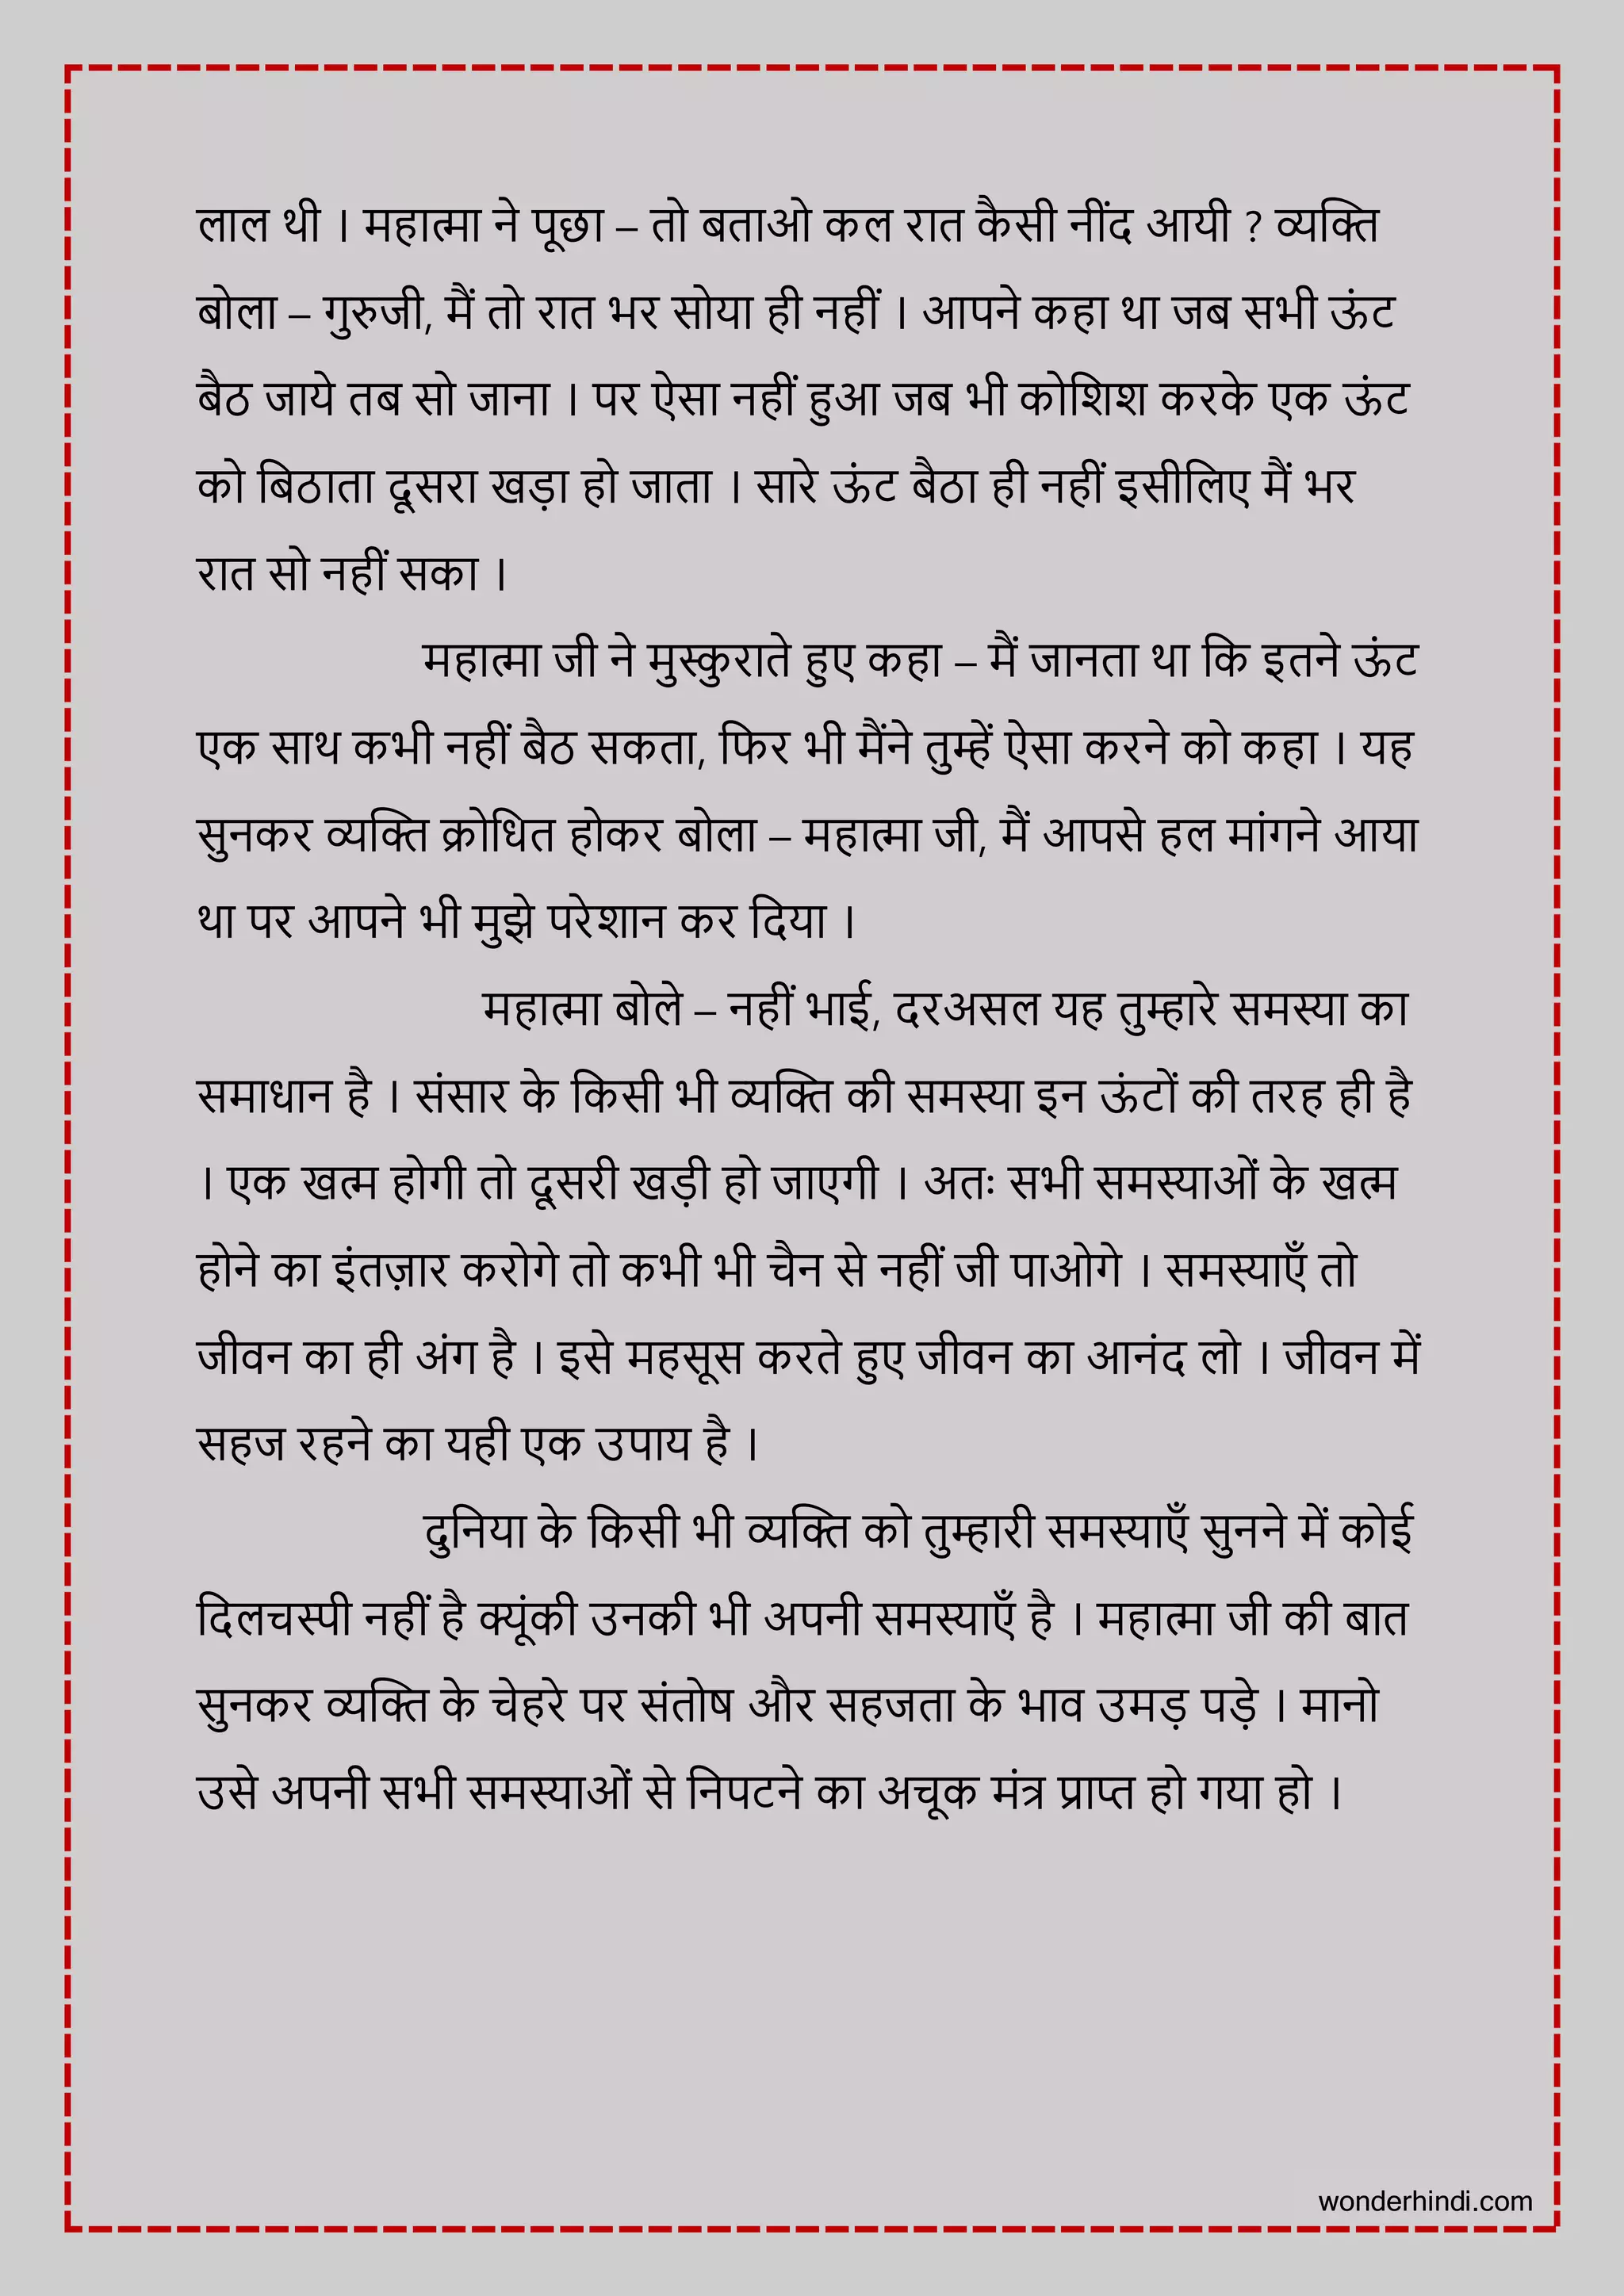 लाल थी । महात्मा ने पूछा – तो बताओ कल रात कैसी नींद आयी ? व्यक्ति
बोला – गुरुजी, मैं तो रात भर सोया ही नहीं । आपने कहा था जब सभी ऊंट
बैठ जाये तब सो जाना । पर ऐसा नहीं हुआ जब भी कोशिश करके एक ऊंट
को बिठाता दूसरा खड़ा हो जाता । सारे ऊंट बैठा ही नहीं इसीलिए मैं भर
रात सो नहीं सका ।
महात्मा जी ने मुस्कुराते हुए कहा – मैं जानता था कि इतने ऊंट
एक साथ कभी नहीं बैठ सकता, फिर भी मैंने तुम्हें ऐसा करने को कहा । यह
सुनकर व्यक्ति क्रोधित होकर बोला – महात्मा जी, मैं आपसे हल मांगने आया
था पर आपने भी मुझे परेशान कर दिया ।
महात्मा बोले – नहीं भाई, दरअसल यह तुम्हारे समस्या का
समाधान है । संसार के किसी भी व्यक्ति की समस्या इन ऊंटों की तरह ही है
। एक खत्म होगी तो दूसरी खड़ी हो जाएगी । अतः सभी समस्याओं के खत्म
होने का इंतज़ार करोगे तो कभी भी चैन से नहीं जी पाओगे । समस्याएँ तो
जीवन का ही अंग है । इसे महसूस करते हुए जीवन का आनंद लो । जीवन में
सहज रहने का यही एक उपाय है ।
दुनिया के किसी भी व्यक्ति को तुम्हारी समस्याएँ सुनने में कोई
दिलचस्पी नहीं है क्यूंकी उनकी भी अपनी समस्याएँ है । महात्मा जी की बात
सुनकर व्यक्ति के चेहरे पर संतोष और सहजता के भाव उमड़ पड़े । मानो
उसे अपनी सभी समस्याओं से निपटने का अचूक मंत्र प्राप्त हो गया हो ।
wonderhindi.com